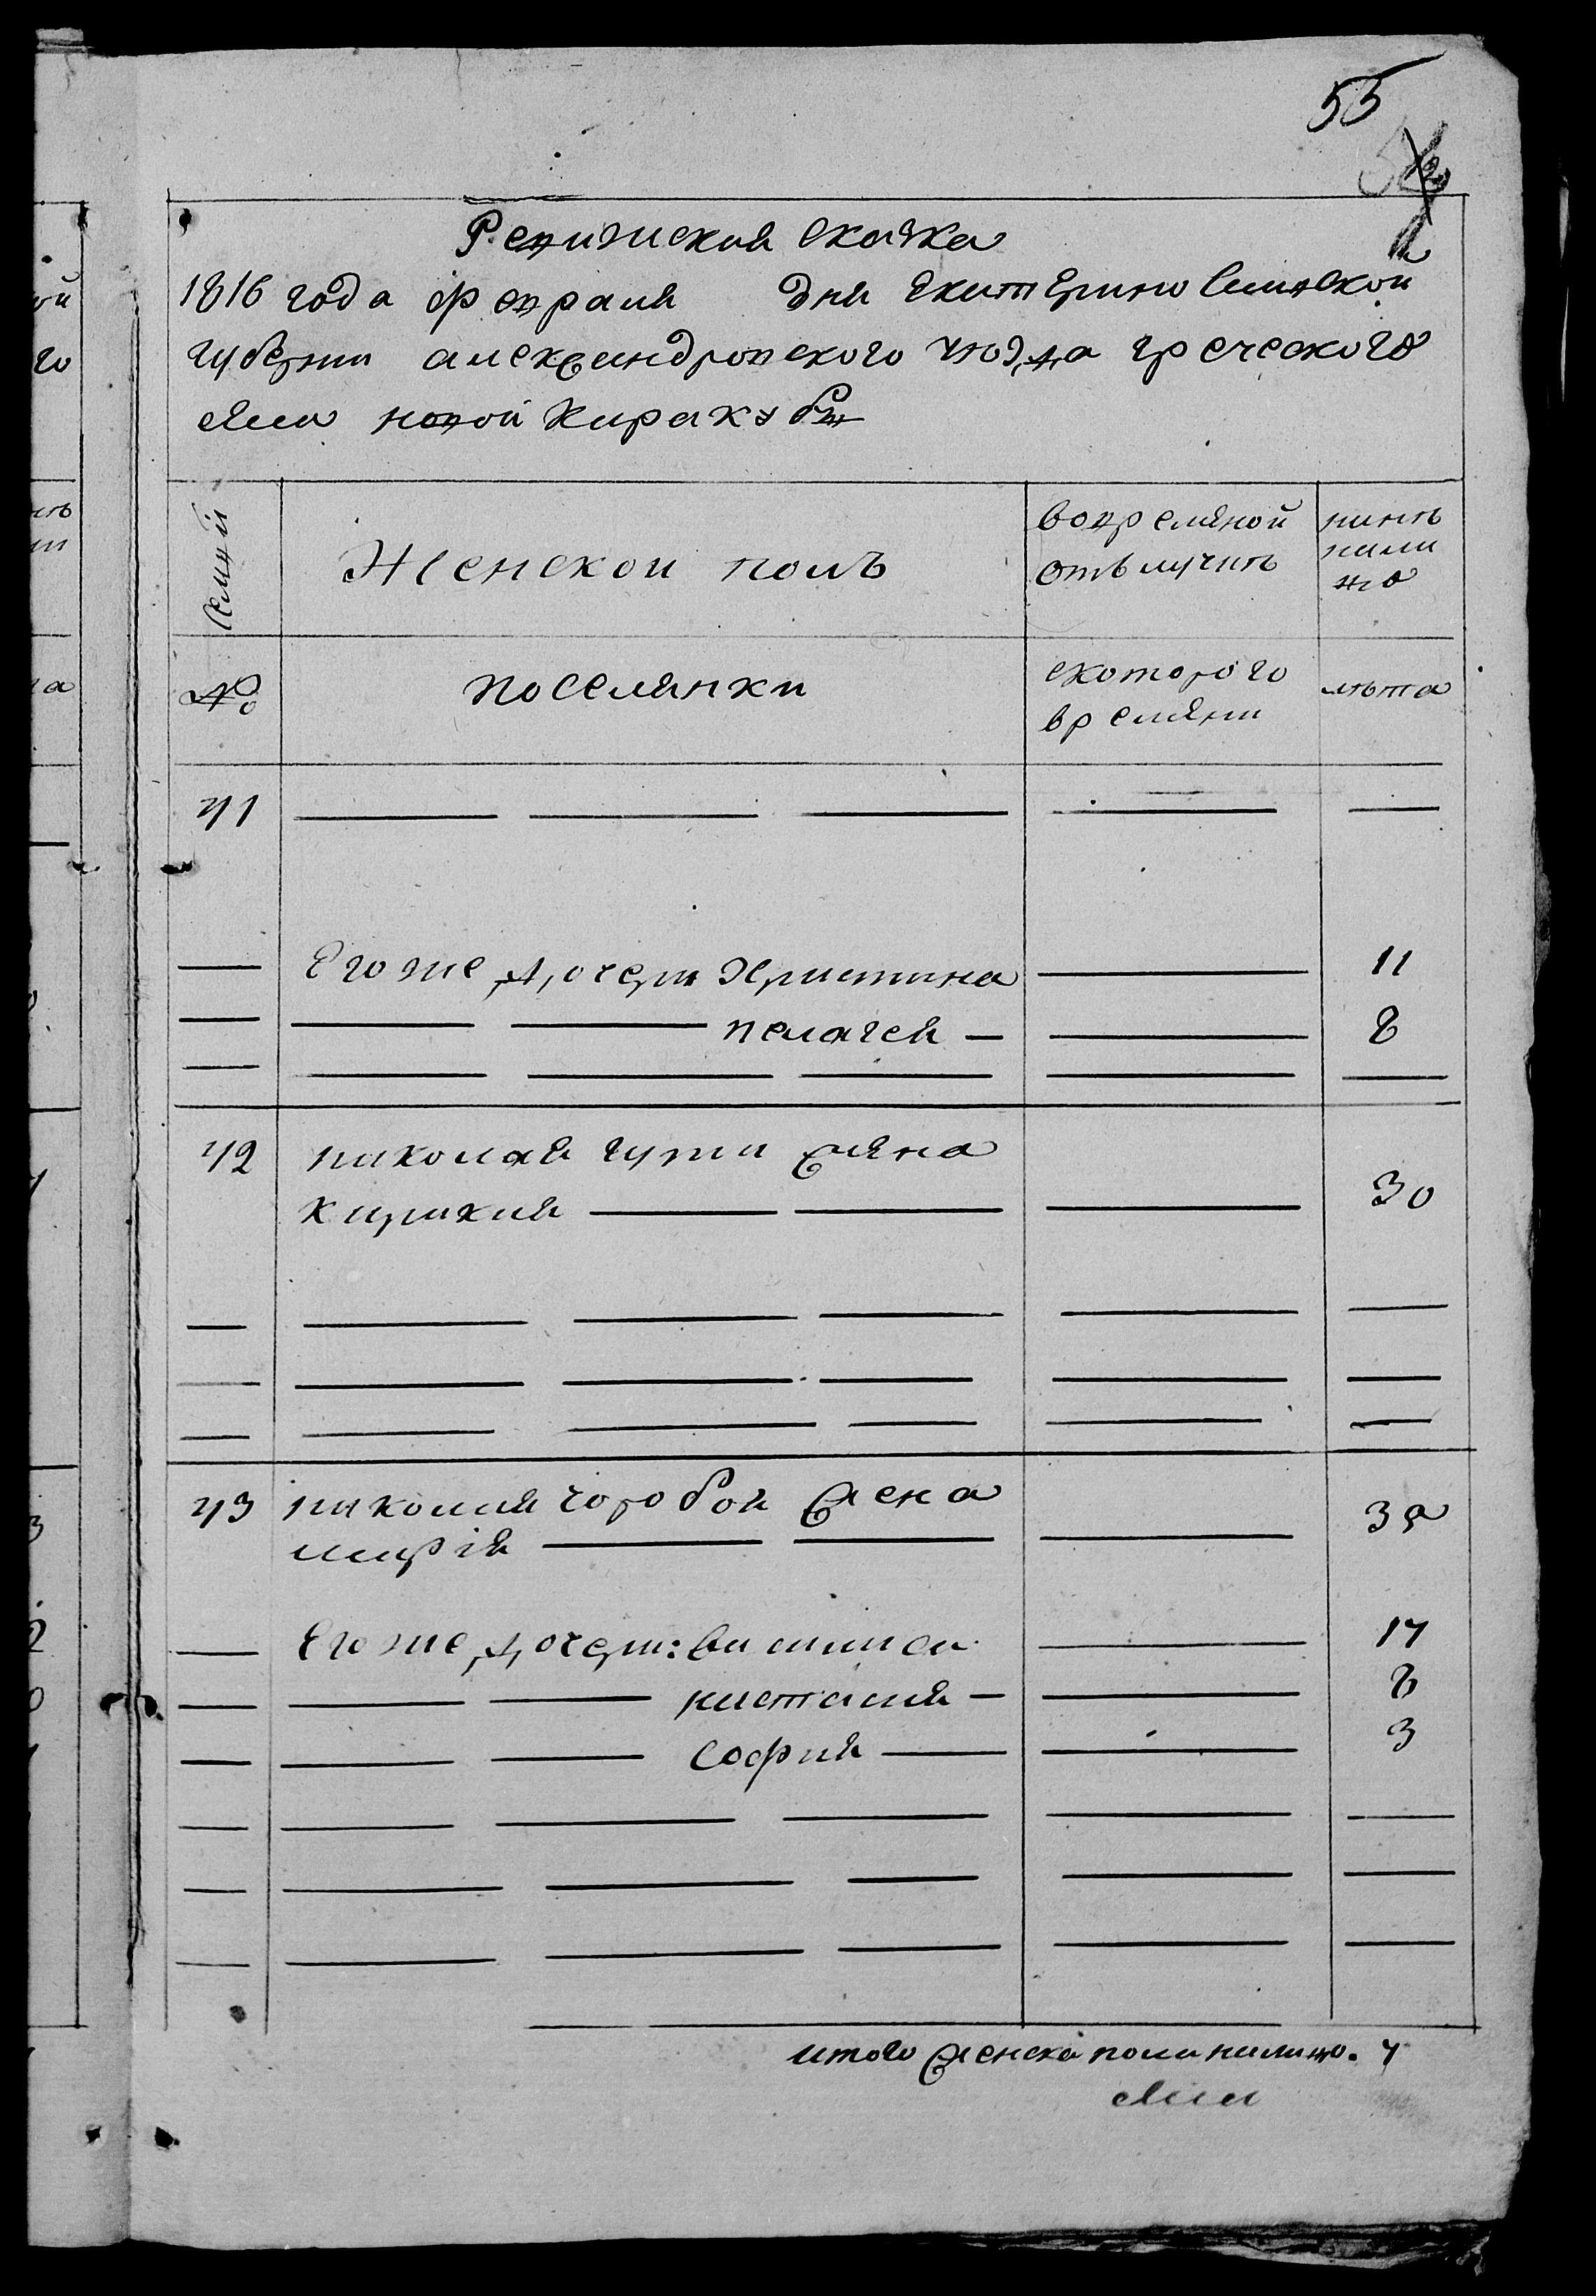 55
Ревижская скаска
1816 года февраля дня Екатериносславской
губерни александровского уюэзда греческого
села новой каракубы
Семьи
Женской полъ
вовремяной
отълучить
нынть
нали
цо
№
поселянки
скоторого
времяни
лѣта
41
Его же дочери христина 11
пелагея 8
42 николая гурти жена
кирикия 30
43 николая чоробой жена
марѣя 39
Его же дочери: василиса 17
настасия 8
софия 3
итого женска пола налицо. 7